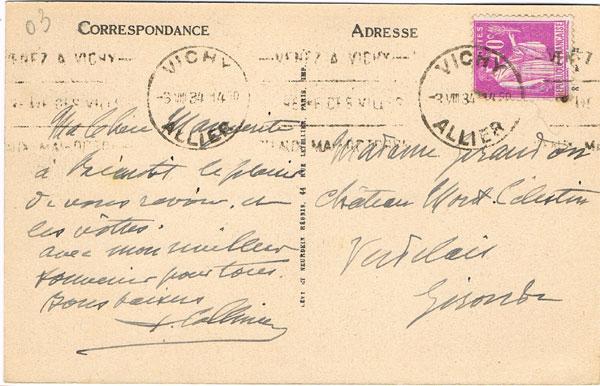 03
CORRESPONDANCE
ADRESSE
VENEZ A VICHY
VICHY
-3 VIII 34 14 50
ALLIER
VENEZ A VICHY
REINE DES VILLES
MAI-OCTOBRE
VICHY
-3 VIII 34 14 50
ALLIER
POSTES
REPUBLIQUE FRANÇAISE
Ma Chère Marguerite
à Bientôt le plaisir
de vous revoir, et
les vôtres.
avec mon meilleur
souvenir pour tous.
Bons baisers
LÉVY ET NEURDEIN RÉUNIS, 44 RUE LETELLIER, PARIS, IMP.
Madame
Château Mont Célestin
Verdelais
Gironde